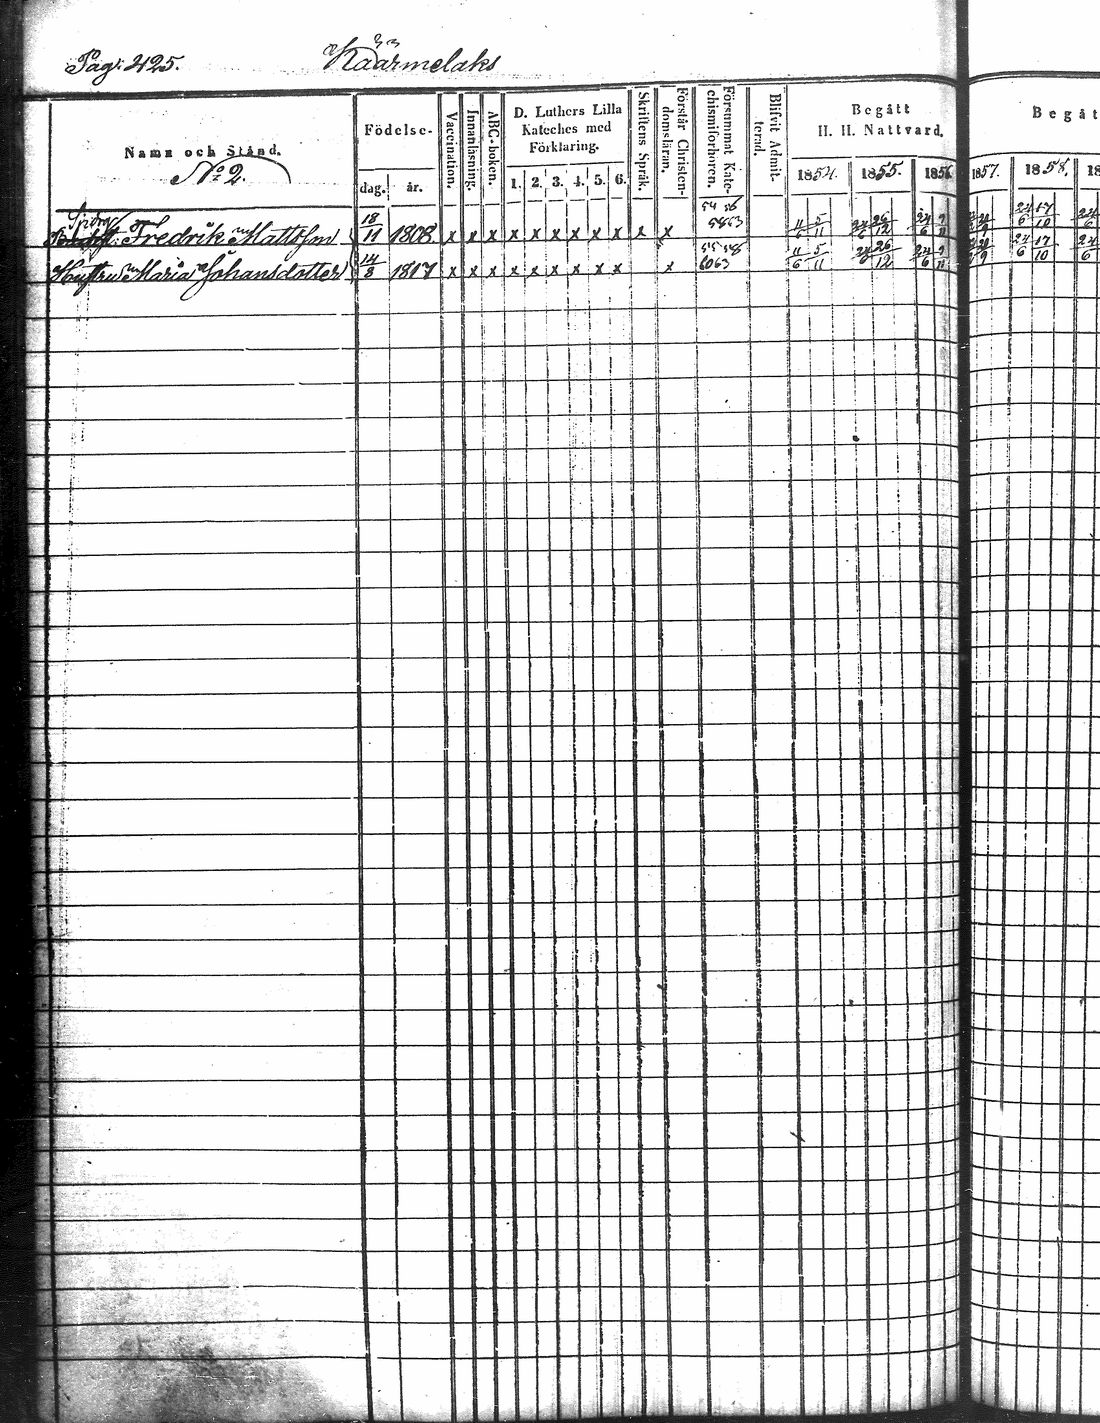 Pag: 425.
Käärmelaks
Namn och Stånd.
No 2.
Födelse-
dag. år.
Vaccination.
Innanläsning.
ABC-boken.
D. Luthers Lilla
Kateches med
Förklaring.
1. 2. 3. 4. 5. 6.
Skriftens Språk.
Förstår Christen-
domsläran.
Försummat Kate-
chismiförhören.
Blifvit Admit-
terad.
Begått
H. H. Nattvard.
1854. 1855. 1856
Begåt
1857. 1858. 18
Fredrik Mattsson 18/11 1808 x x x x x x x x x x x 54 56 58 63 11/6 5/11 24/6 26/12 24/6 9/11 24/6 17/10 24/6
Hustru Maria Johansdotter 14/8 1817 x x x x x x x x x x 55 58 60 63 11/6 5/11 24/6 26/12 24/6 9/11 24/6 17/10 24/6